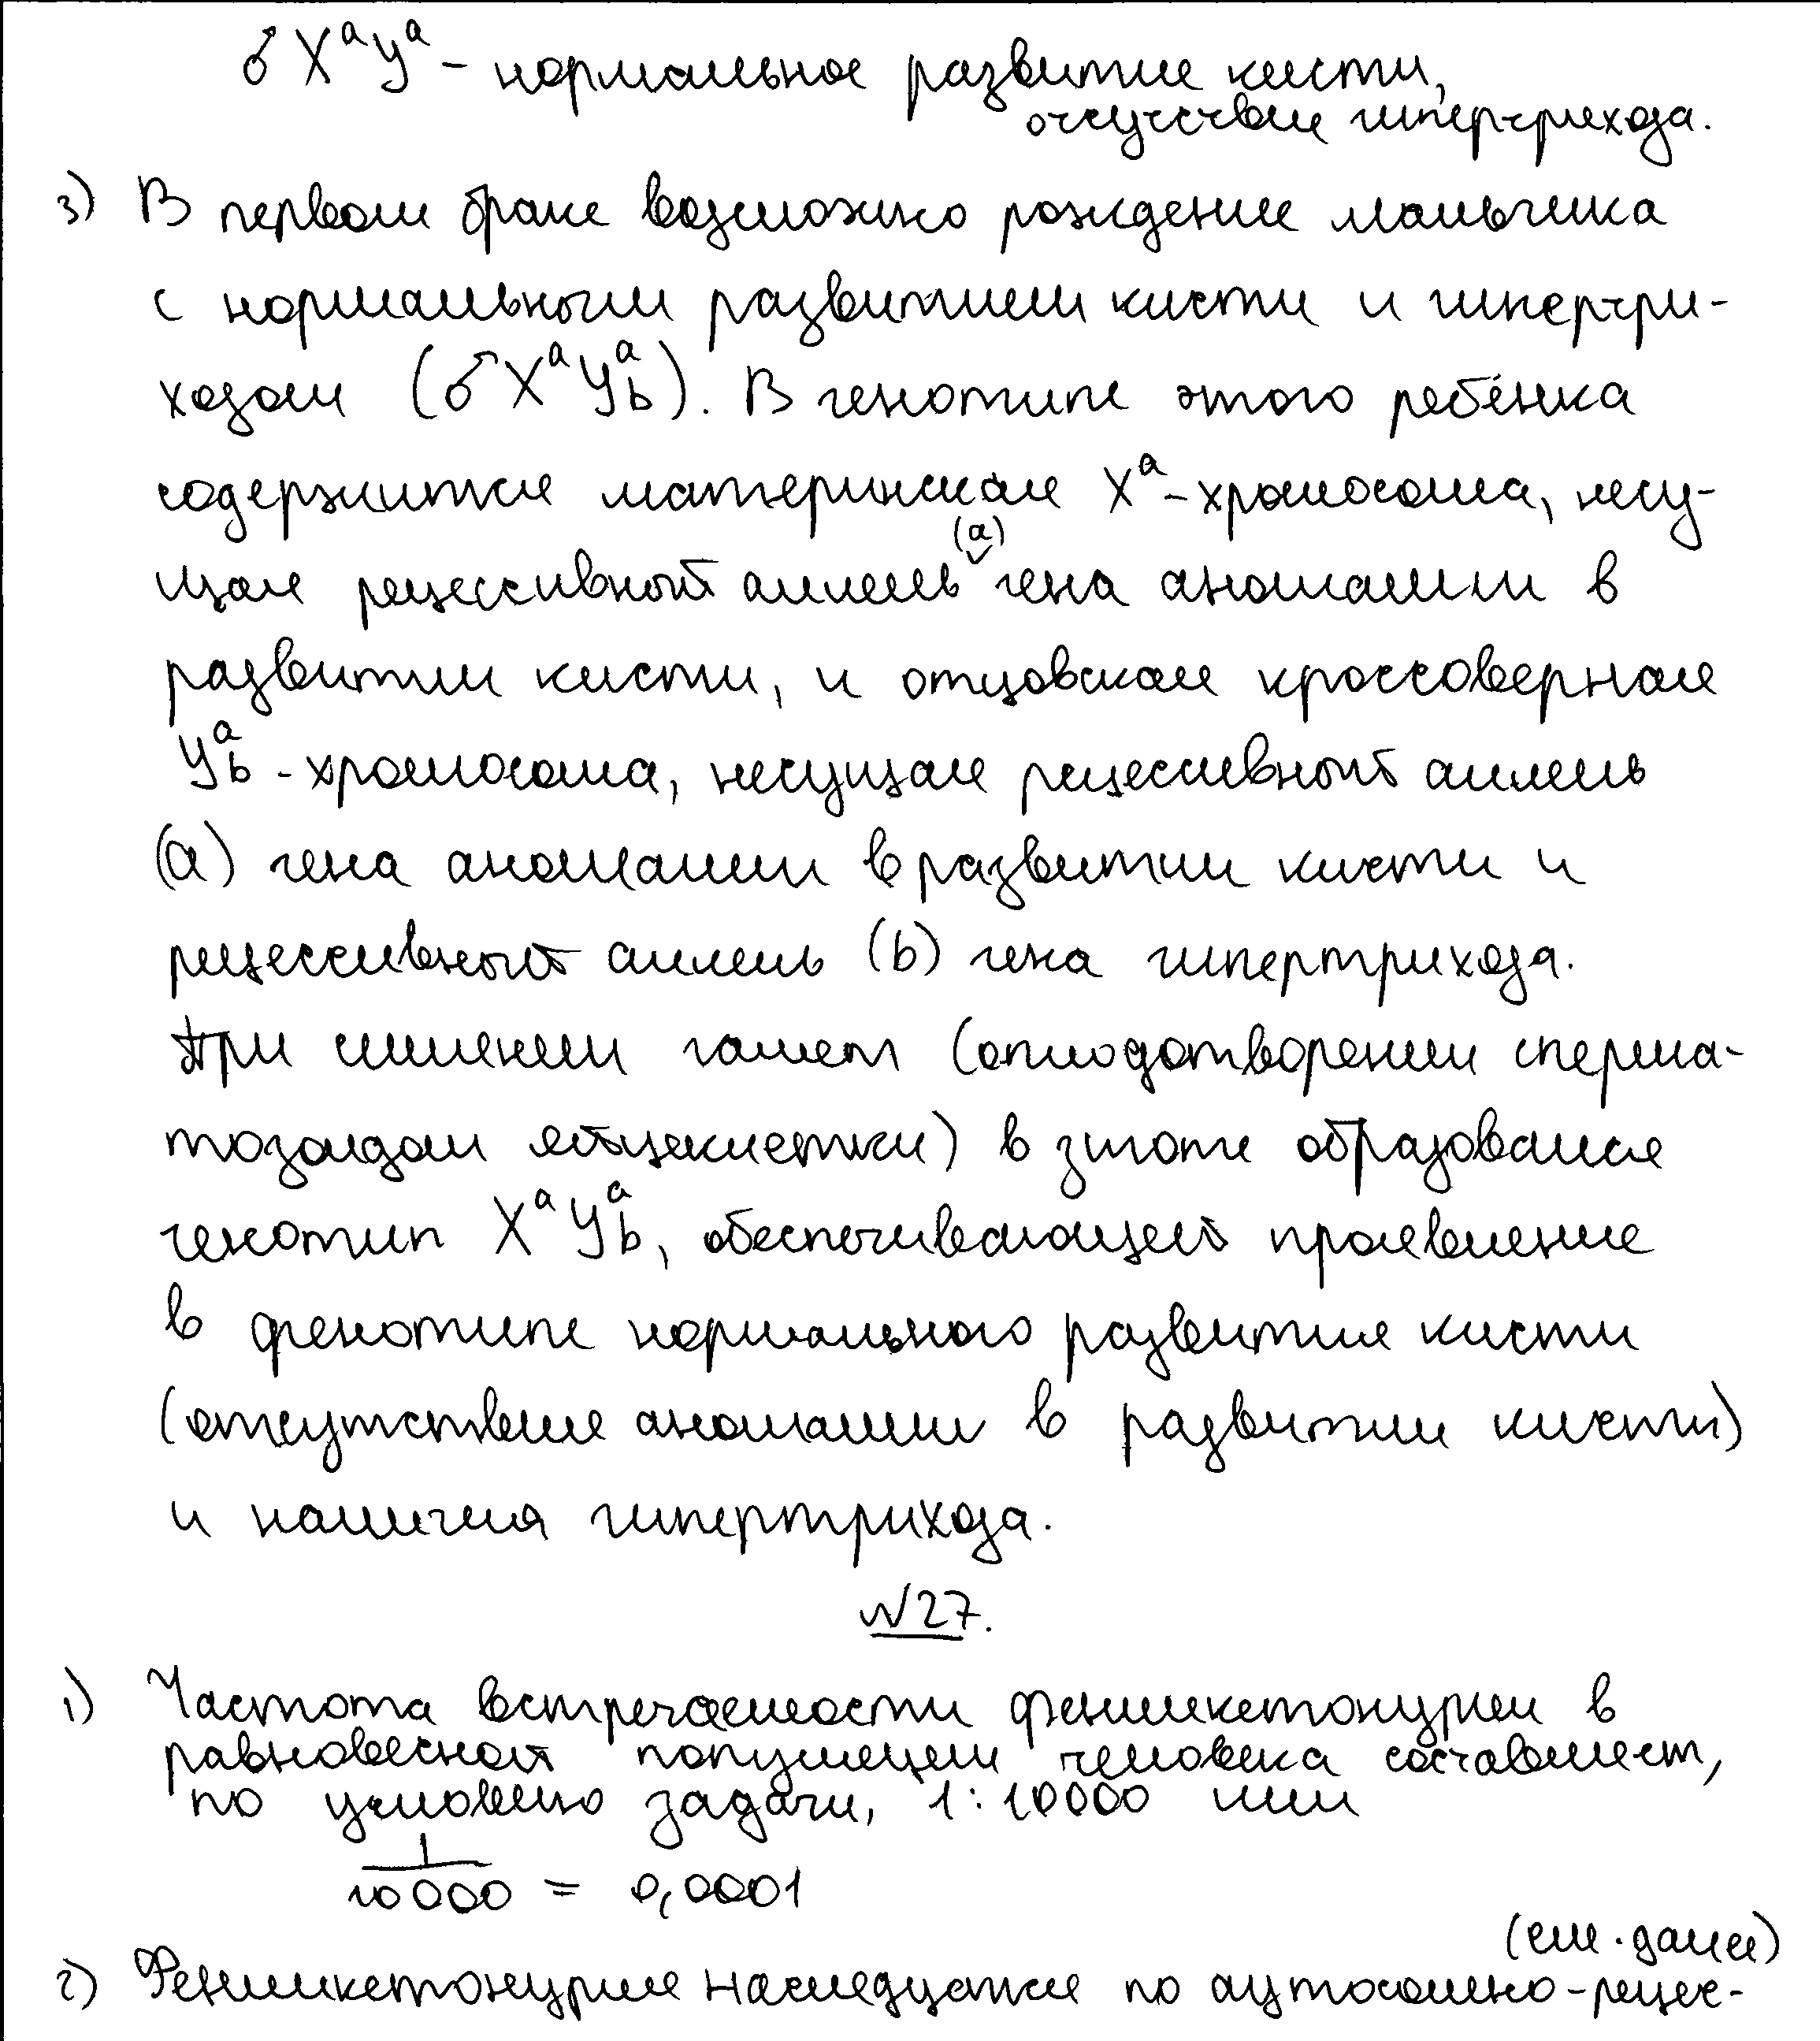 ♂ X^a У^a – нормальное развитие кисти,
отсутствие гипертрихоза.
3) В первом браке возможно рождение мальчика
с нормальным развитием кисти и гипертри-
хозом (♂ X^a У^a_b). В генотипе этого ребёнка
содержится материнская X^a-хромосома, несу-
(a)
щая рецессивный аллель гена аномалии в
развитии кисти, и отцовская кроссоверная
У^a_b-хромосома, несущая рецессивный аллель
(a) гена аномалии в развитии кисти и
рецессивный аллель (b) гена гипертрихоза.
При слиянии гамет (оплодотворении сперма-
тозоидом яйцеклетки) в зиготе образовался
генотип X^a У^a_b, обеспечивающей проявление
в фенотипе нормального развития кисти
(отсутствие аномалии в развитии кисти)
и наличия гипертрихоза.
№27.
1) Частота встречаемости фенилкетонурии в
равновесной популяции человека составляет,
по условию задачи, 1:10000 или
1/10000 = 0,0001
(см. далее)
2) Фенилкетонурия наследуется по аутосомно-рецес-